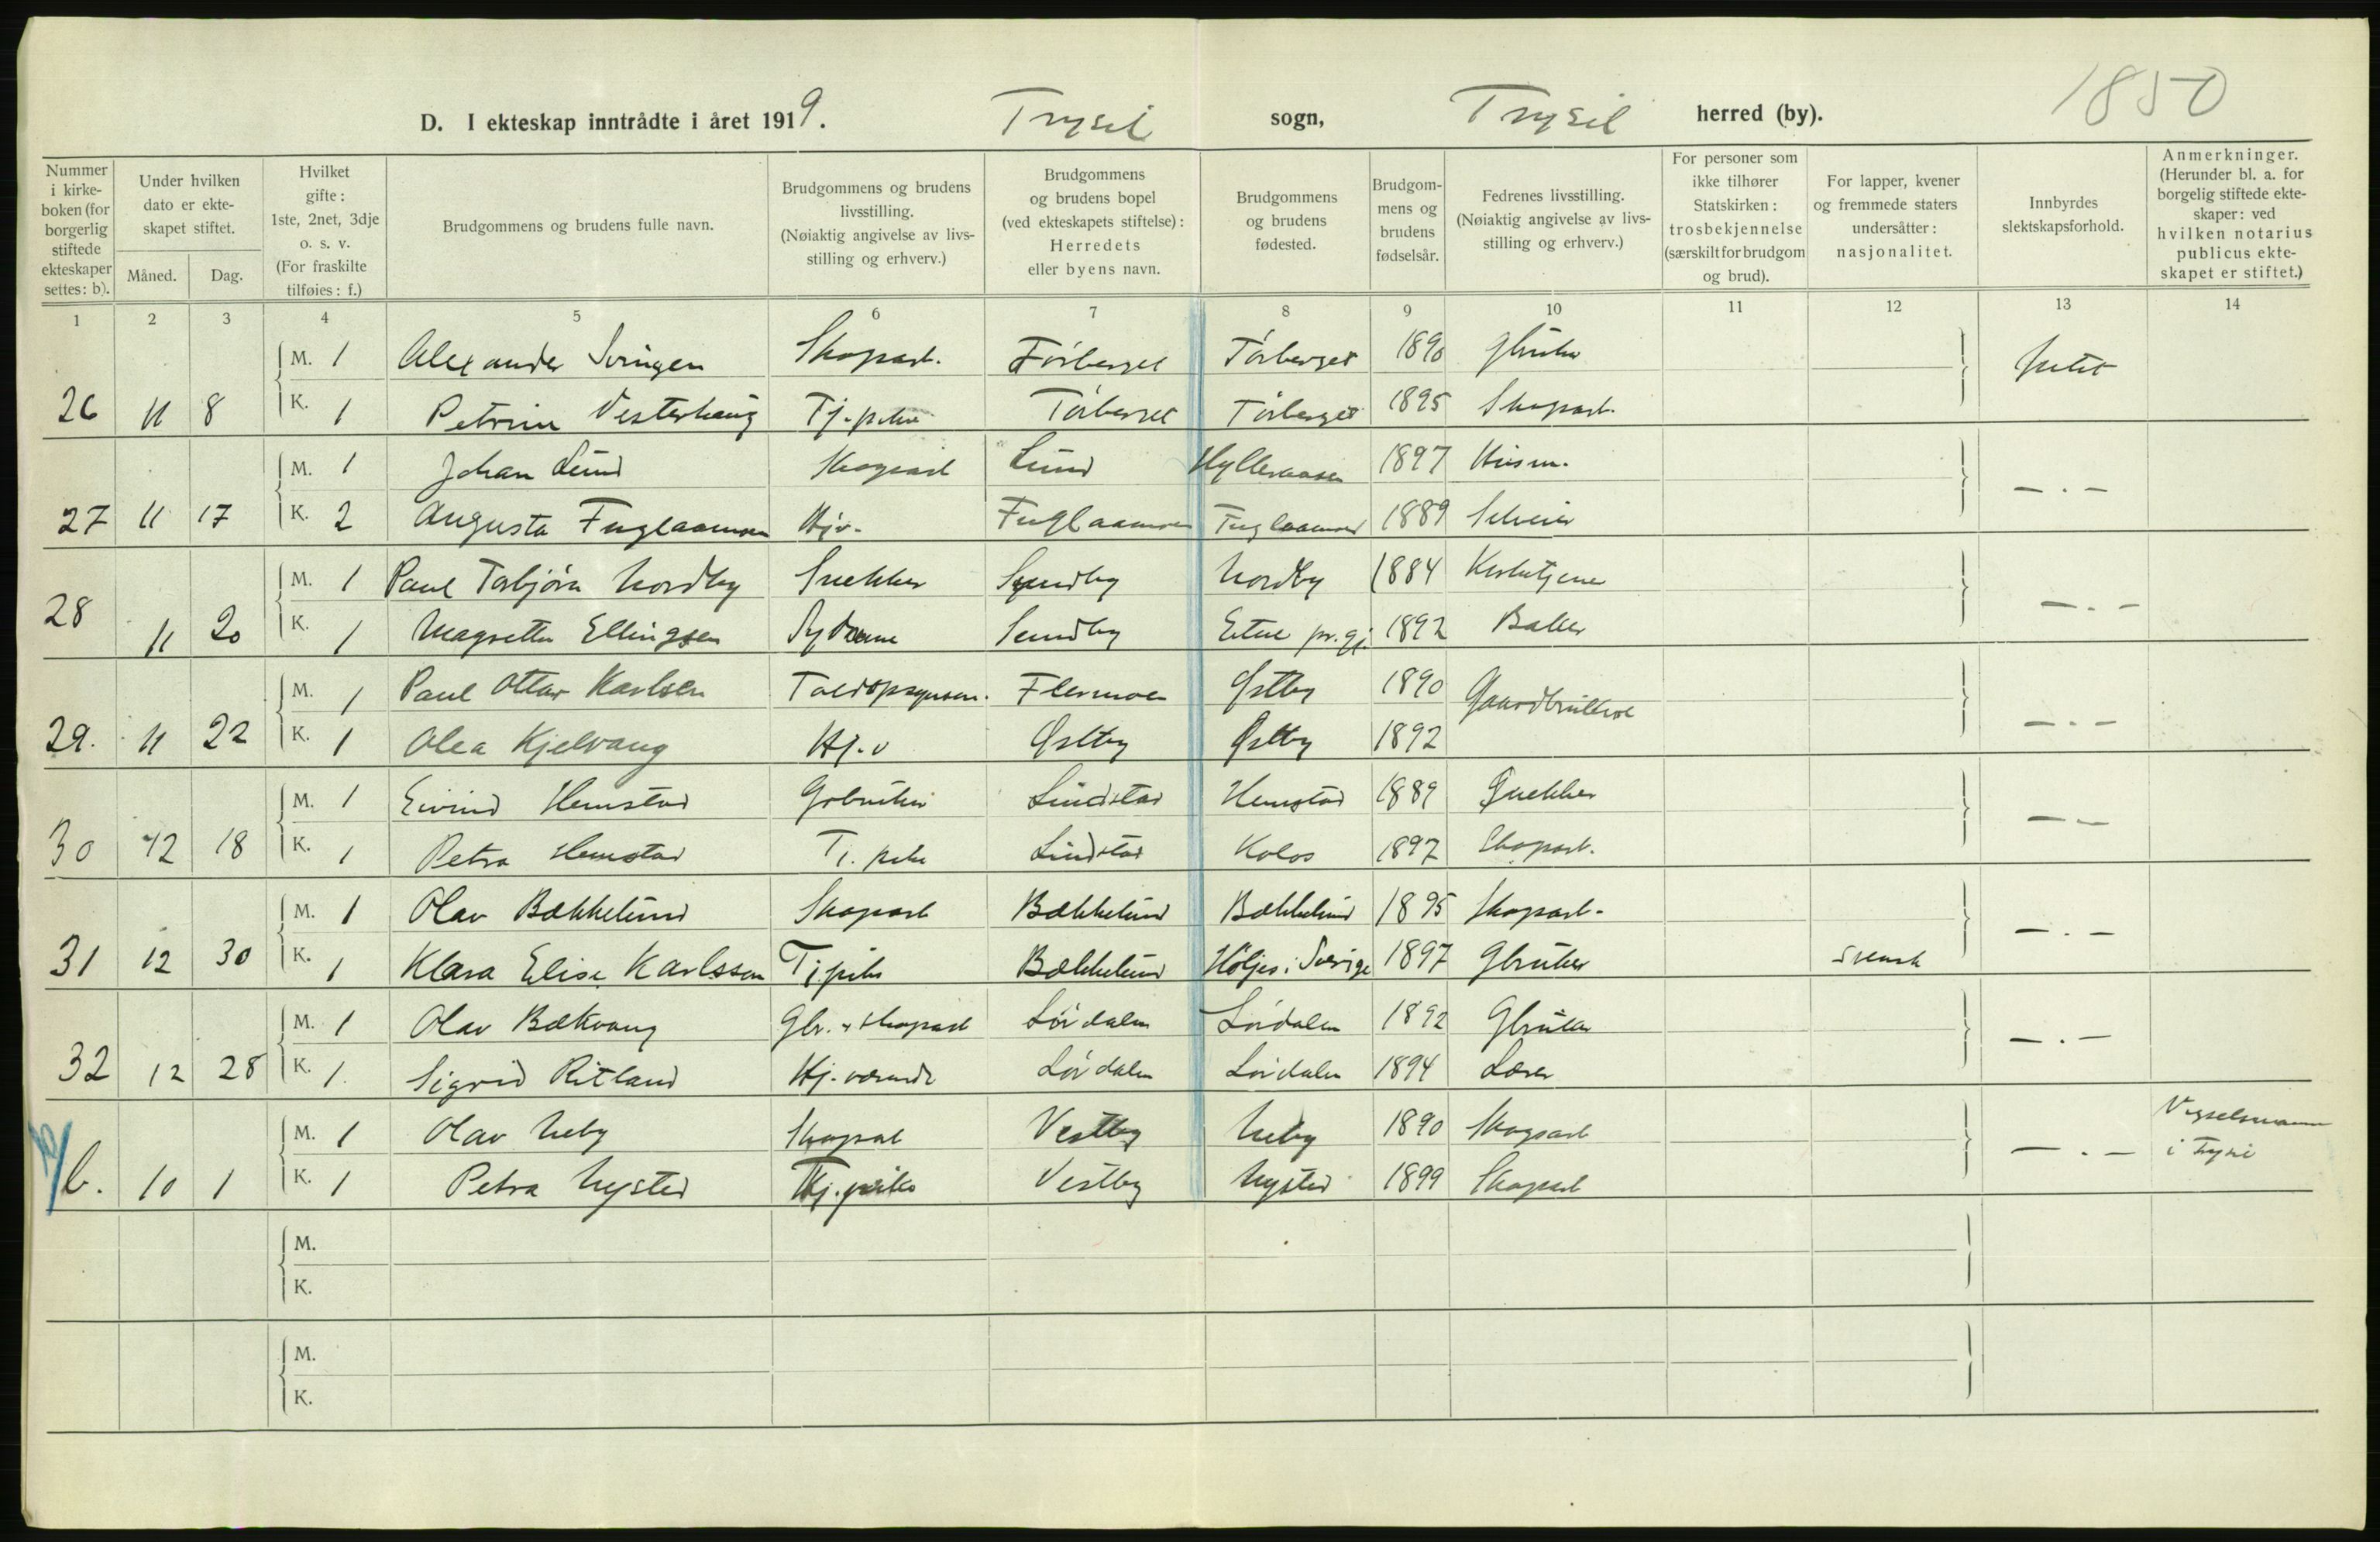 1850
D. I ekteskap inntrådte i året 1919. Trysil sogn, Trysil herred (by).
Nummer i kirke-boken (for borgerlig stiftede ekteskaper settes: b).
Under hvilken dato er ekte-skapet stiftet.
Måned. Dag.
Hvilket gifte: 1ste, 2net, 3dje o. s. v. (For fraskilte tilføies: f.)
Brudgommens og brudens fulle navn.
Brudgommens og brudens livsstilling. (Nøiaktig angivelse av livs-stilling og erhverv.)
Brudgommens og brudens bopel (ved ekteskapets stiftelse): Herredets eller byens navn.
Brudgommens og brudens fødested.
Brudgom-mens og brudens fødselsår.
Fedrenes livsstilling. (Nøiaktig angivelse av livs-stilling og erhverv.)
For personer som ikke tilhører Statskirken: trosbekjennelse (særskilt for brudgom og brud).
For lapper, kvener og fremmede staters undersåtter: nasjonalitet.
Innbyrdes slektskapsforhold.
Anmerkninger. (Herunder bl. a. for borgelig stiftede ekte-skaper: ved hvilken notarius publicus ekte-skapet er stiftet.)
1 2 3 4 5 6 7 8 9 10 11 12 13 14
M. 1 Alexander Svingen Skogsarb. Törberget Törberget 1890 Gbruker Intet
26 11 8 K. 1 Petrine Vesterhaug Tj.pike Törberget Törberget 1895 Skogsarb.
M. 1 Johan Lund Skogsarb Lund Hylleraasen 1897 Husm.
27 11 17 K. 2 Augusta Fuglaamoen Hjv. Fuglaamoen Fuglaamoen 1889 Selveier — . —
M. 1 Paul Torbjörn Nordby Snekker Sundby Nordby 1884 Kirketjener
28 11 20 K. 1 Magrethe Ellingsen Sydame Sundby Etne pr.gj. 1892 Baker — . —
M. 1 Paul Ottar Karlsen Toldopsynsm. Flermoen Østby 1890 Gaardbruker
29. 11 22 K. 1 Olea Kjelvang Hj.v Østby Østby 1892 — . —
M. 1 Eivind Hemstad Gbruker Lundstad Hemstad 1889 Snekker
30 12 18 K. 1 Petra Hemstad Tj. pike Lundstad Kolos 1897 Skogsarb. — —
M. 1 Olav Bækkelund Skogsarb Bækkelund Bækkelund 1895 Skogsarb.
31 12 30 K. 1 Klara Elise Karlsson Tjpike Bækkelund Höljes i Sverige 1897 Gbruker svensk — . —
M. 1 Olav Bækvang Gbr. & skogsarb Lördalen Lördalen 1892 Gbruker
32 12 28 K. 1. Sigrid Ritland Hj.værende Lördalen Lördalen 1894 Lærer — . —
M. 1 Olav Neby Skogsarb Vestby Neby 1890 Skogsarb Vigselsmann
b. 10 1 K. 1 Petra Nysted Tj.pike Vestby Nysted 1899 Skogsarb — . — i Trysil
M.
K.
M.
K.